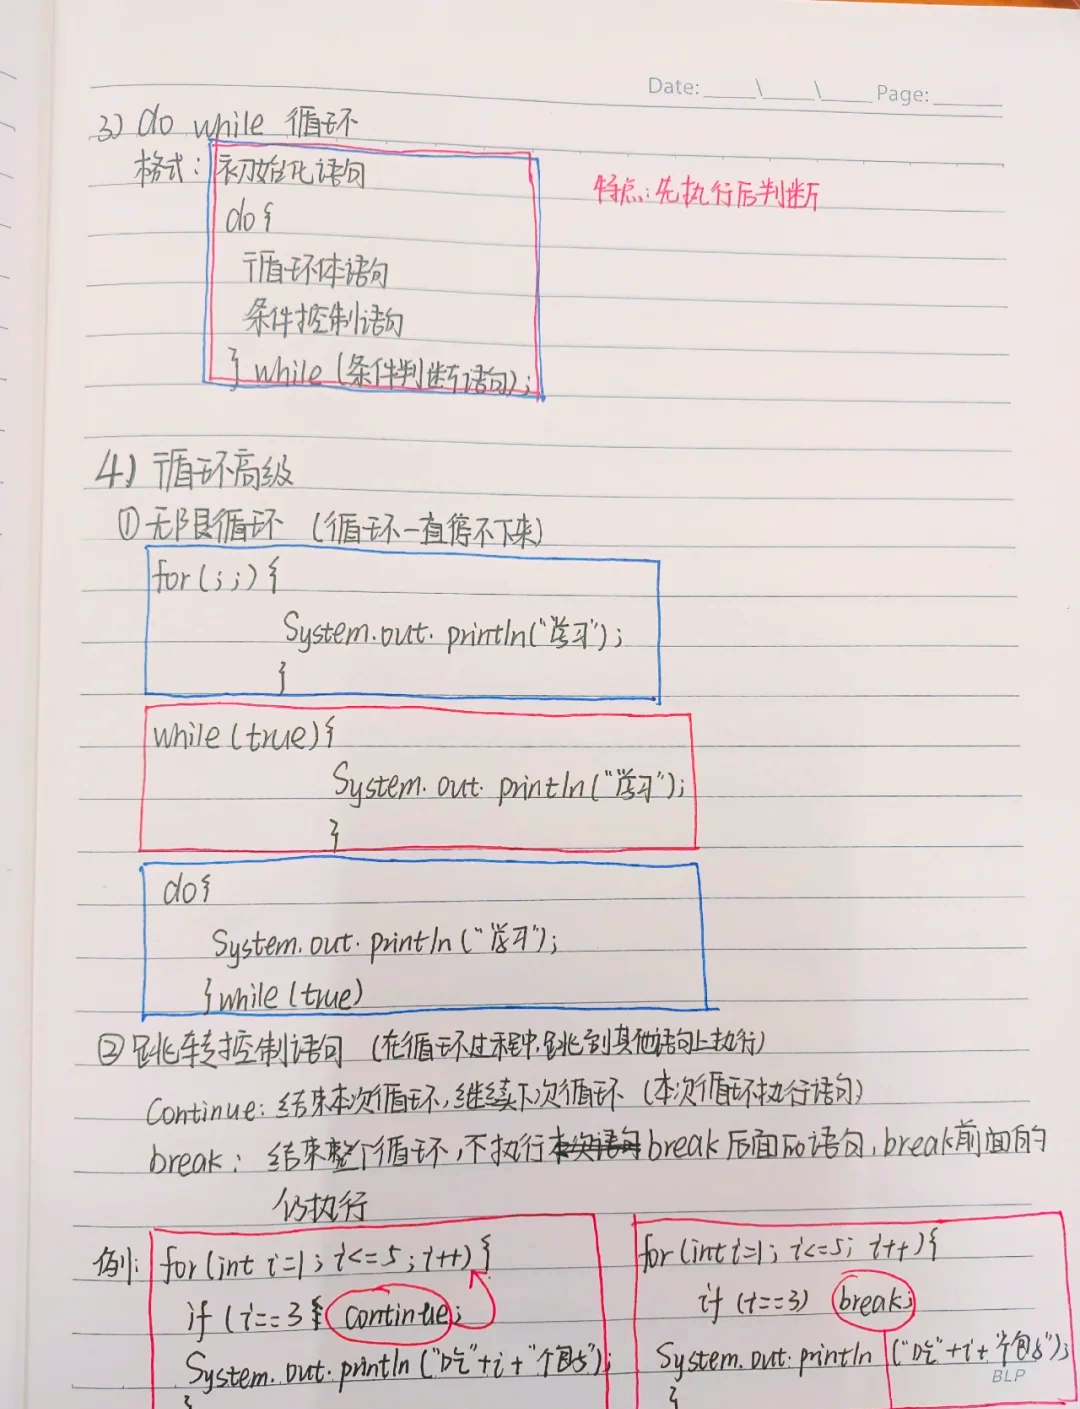 Date: ____\____\____ Page: ______
3) do while 循环
格式: 初始化语句
特点: 先执行后判断
do{
循环体语句
条件控制语句
} while (条件判断语句);
4) 循环高级
①无限循环 (循环一直停不下来)
for(;;){
System.out.println("学习");
}
while(true){
System.out.println("学习");
}
do{
System.out.println("学习");
}while(true)
②跳转控制语句 (在循环过程中,跳到其他语句上执行)
Continue: 结束本次循环,继续下次循环 (本次循环执行语句)
break: 结束整个循环,不执行本次语句break后面的语句,break前面的
仍执行
例: for(int i=1; i<=5; i++){
if (i==3{ continue;
System.out.println("吃"+i+"个包子");
}
for(int i=1; i<=5; i++){
if (i==3) break;
System.out.println("吃"+i+"个包子");
}
BLP